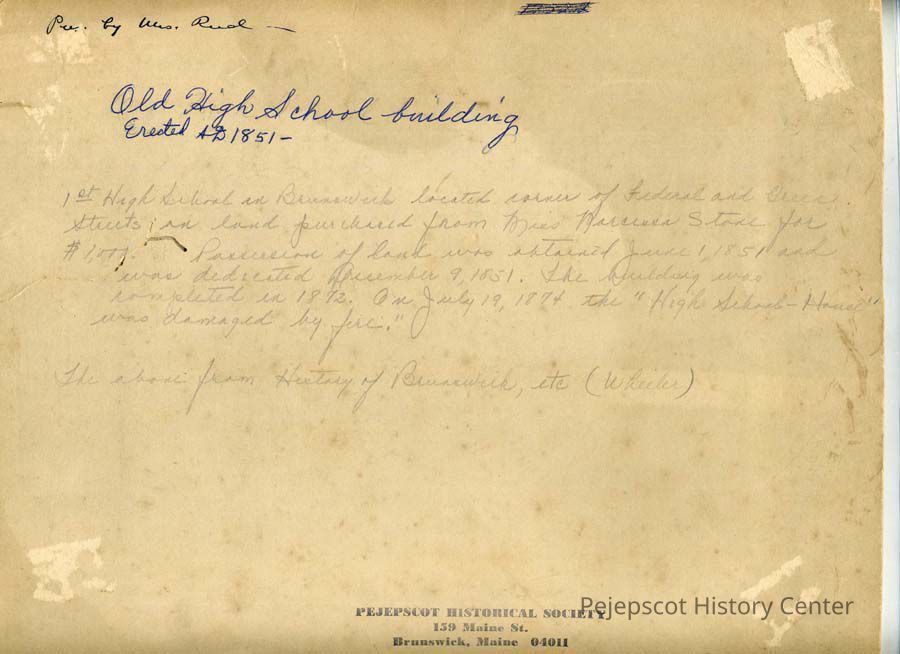 Pre. by Mrs. Rud —
Old High School building
Erected AD 1851 —
1st High School in Brunswick located corner of Federal and Green
Streets; on land purchased from Miss Narcissa Stone for
$1,000. Possession of land was obtained June 1, 1851 and
was dedicated December 9, 1851. The building was
completed in 1872. On July 19, 1874 the "High School-House"
was damaged by fire."
The above from History of Brunswick, etc (Wheeler)
PEJEPSCOT HISTORICAL SOCIETY
159 Maine St.
Brunswick, Maine 04011
Pejepscot History Center